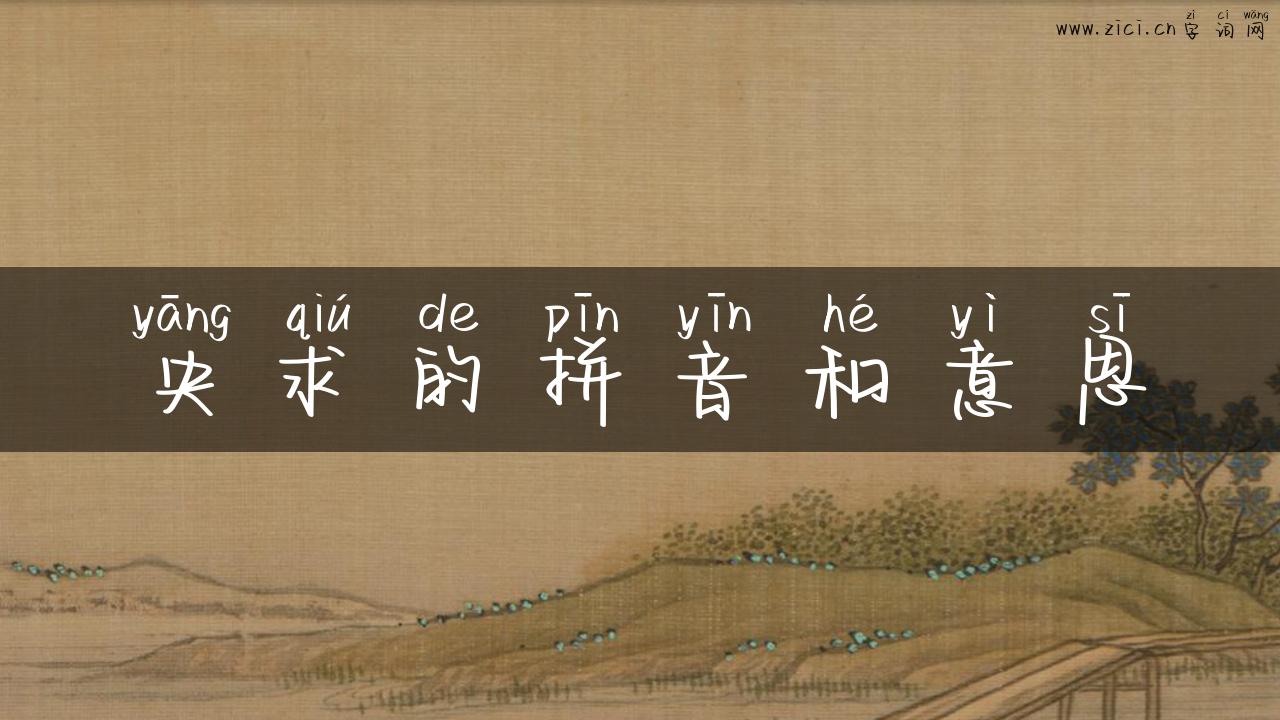 zì cí wǎng
www.zici.cn 字 词 网
yāng qiú de pīn yīn hé yì sī
央 求 的 拼 音 和 意 思